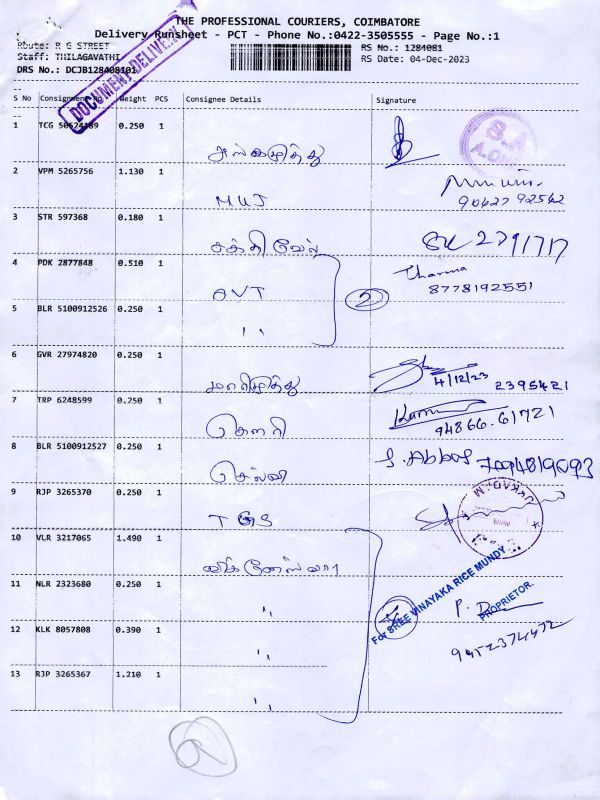 THE PROFESSIONAL COURIERS, COIMBATORE
Delivery Runsheet - PCT - Phone No.:0422-3505555 - Page No.:1
Route: R G STREET
Staff: THILAGAVATHI
DRS No.: DCJB128408101
RS No.: 1284081
RS Date: 04-Dec-2023
DOCUMENT DELIVERY
S No Consignment No Weight PCS Consignee Details Signature
1 TCG 0.250 1
S.A
2 VPM 5265756 1.130 1
MUJ
90427 92562
3 STR 597368 0.180 1
சக்திவேல்
4 PDK 2877848 0.510 1
OVT
2
Tharma
8778192551
5 BLR 5100912526 0.250 1
,,
6 GVR 27974820 0.250 1
மாரிமுத்து
4/12/23 2395421
7 TRP 6248599 0.250 1
கௌரி
94866.61721
8 BLR 5100912527 0.250 1
செல்வி
S. Abbas 7094819093
9 RJP 3265370 0.250 1
TGS
10 VLR 3217065 1.490 1
விக்னேஸ்வரா
For SREE VINAYAKA RICE MUNDY
11 NLR 2323680 0.250 1
,,
P.
PROPRIETOR.
12 KLK 8057808 0.390 1
,,
13 RJP 3265367 1.210 1
,,